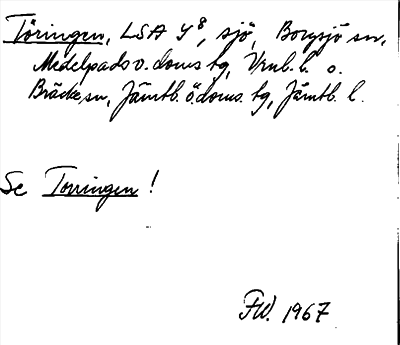 Töringen, LSA Y8, sjö, Borgsjö sn,
Medelpads v. doms tg, Vrnl. l. o.
Bräcke sn, Jämtl. ö. doms. tg, Jämtl. l.
Se Torringen!
FW. 1967